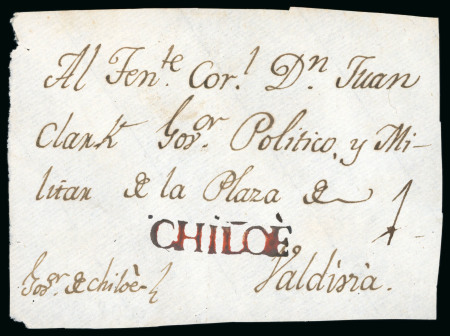 Al Ten.te Cor.l D.n Juan
Clark Gov.or Politico, y Mi-
litar de la Plaza de
CHILOÈ
Valdivia.
Gov.or de chiloè